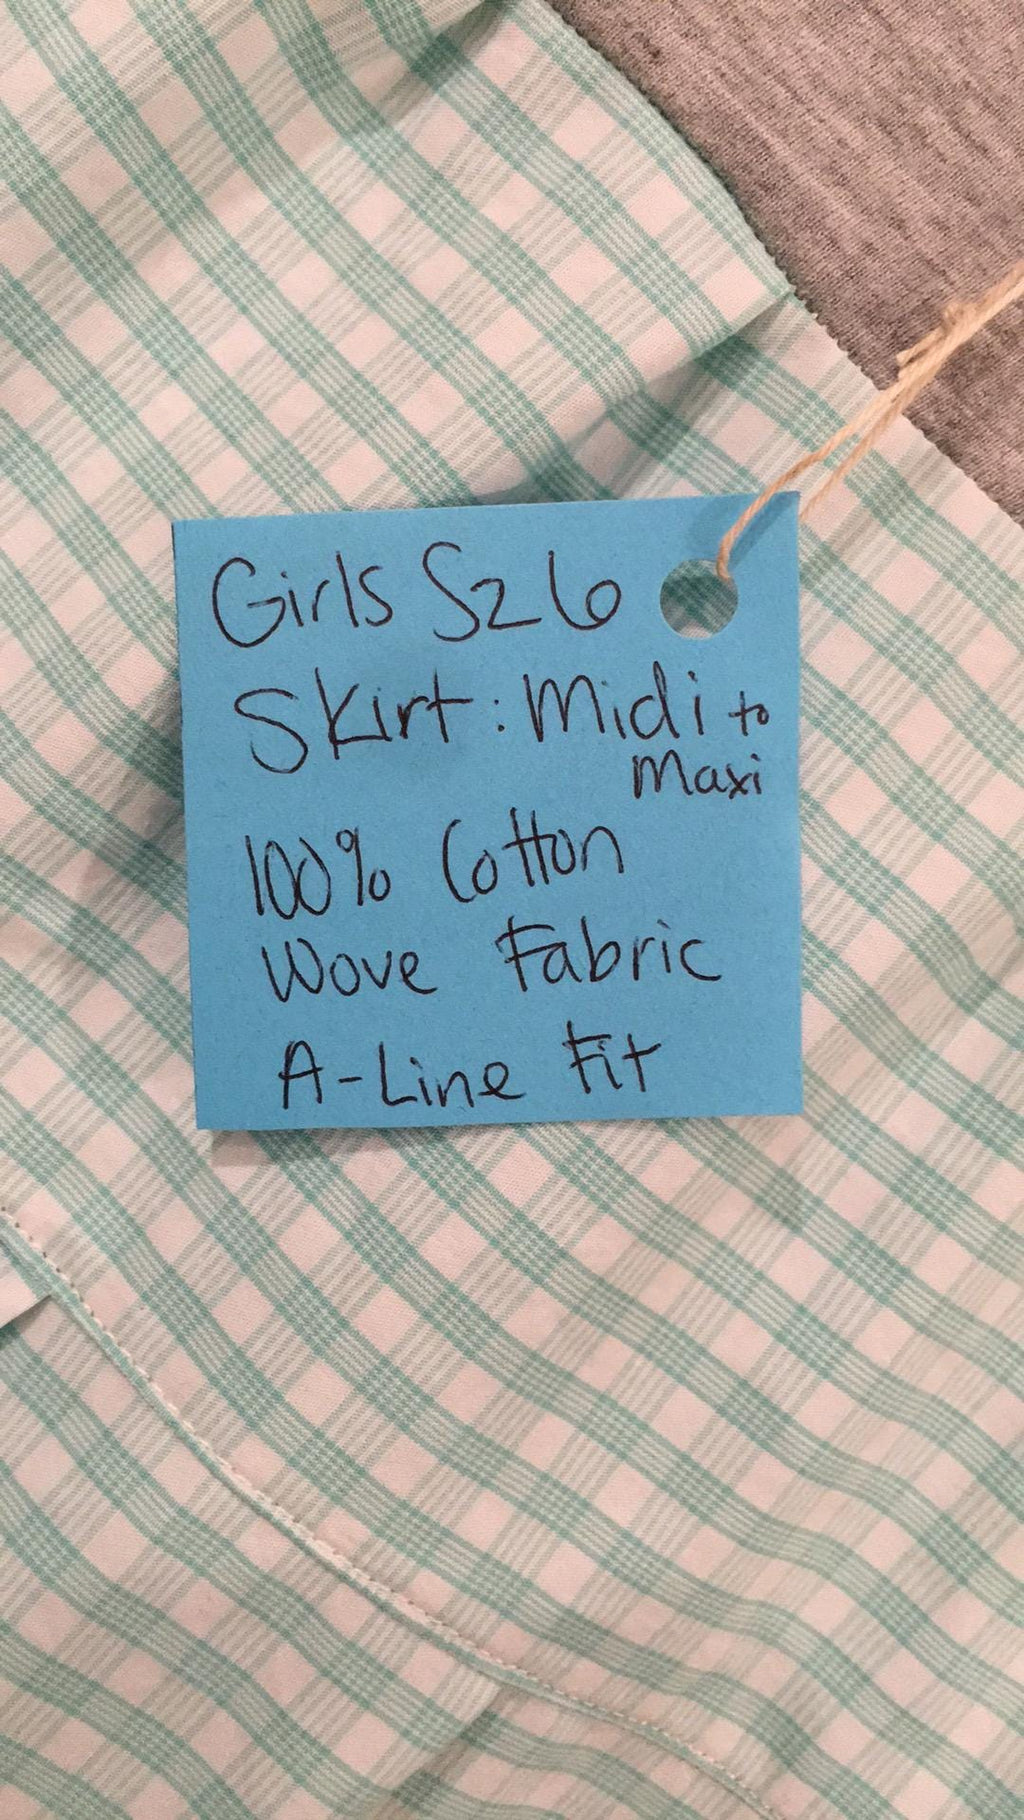 Girls Sz 6
Skirt: Midi to
Maxi
100% Cotton
Wove Fabric
A-Line Fit